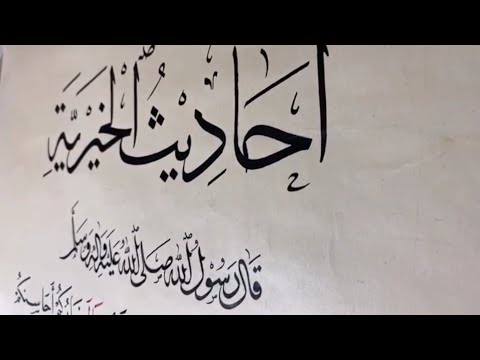 أَحَادِيثُ الْخَيْرِيَّةِ
قَالَ رَسُولُ اللّٰهِ صَلَّى اللّٰهُ عَلَيْهِ وَاٰلِهِ وَسَلَّمَ
أَحَاسِنُكُمْ